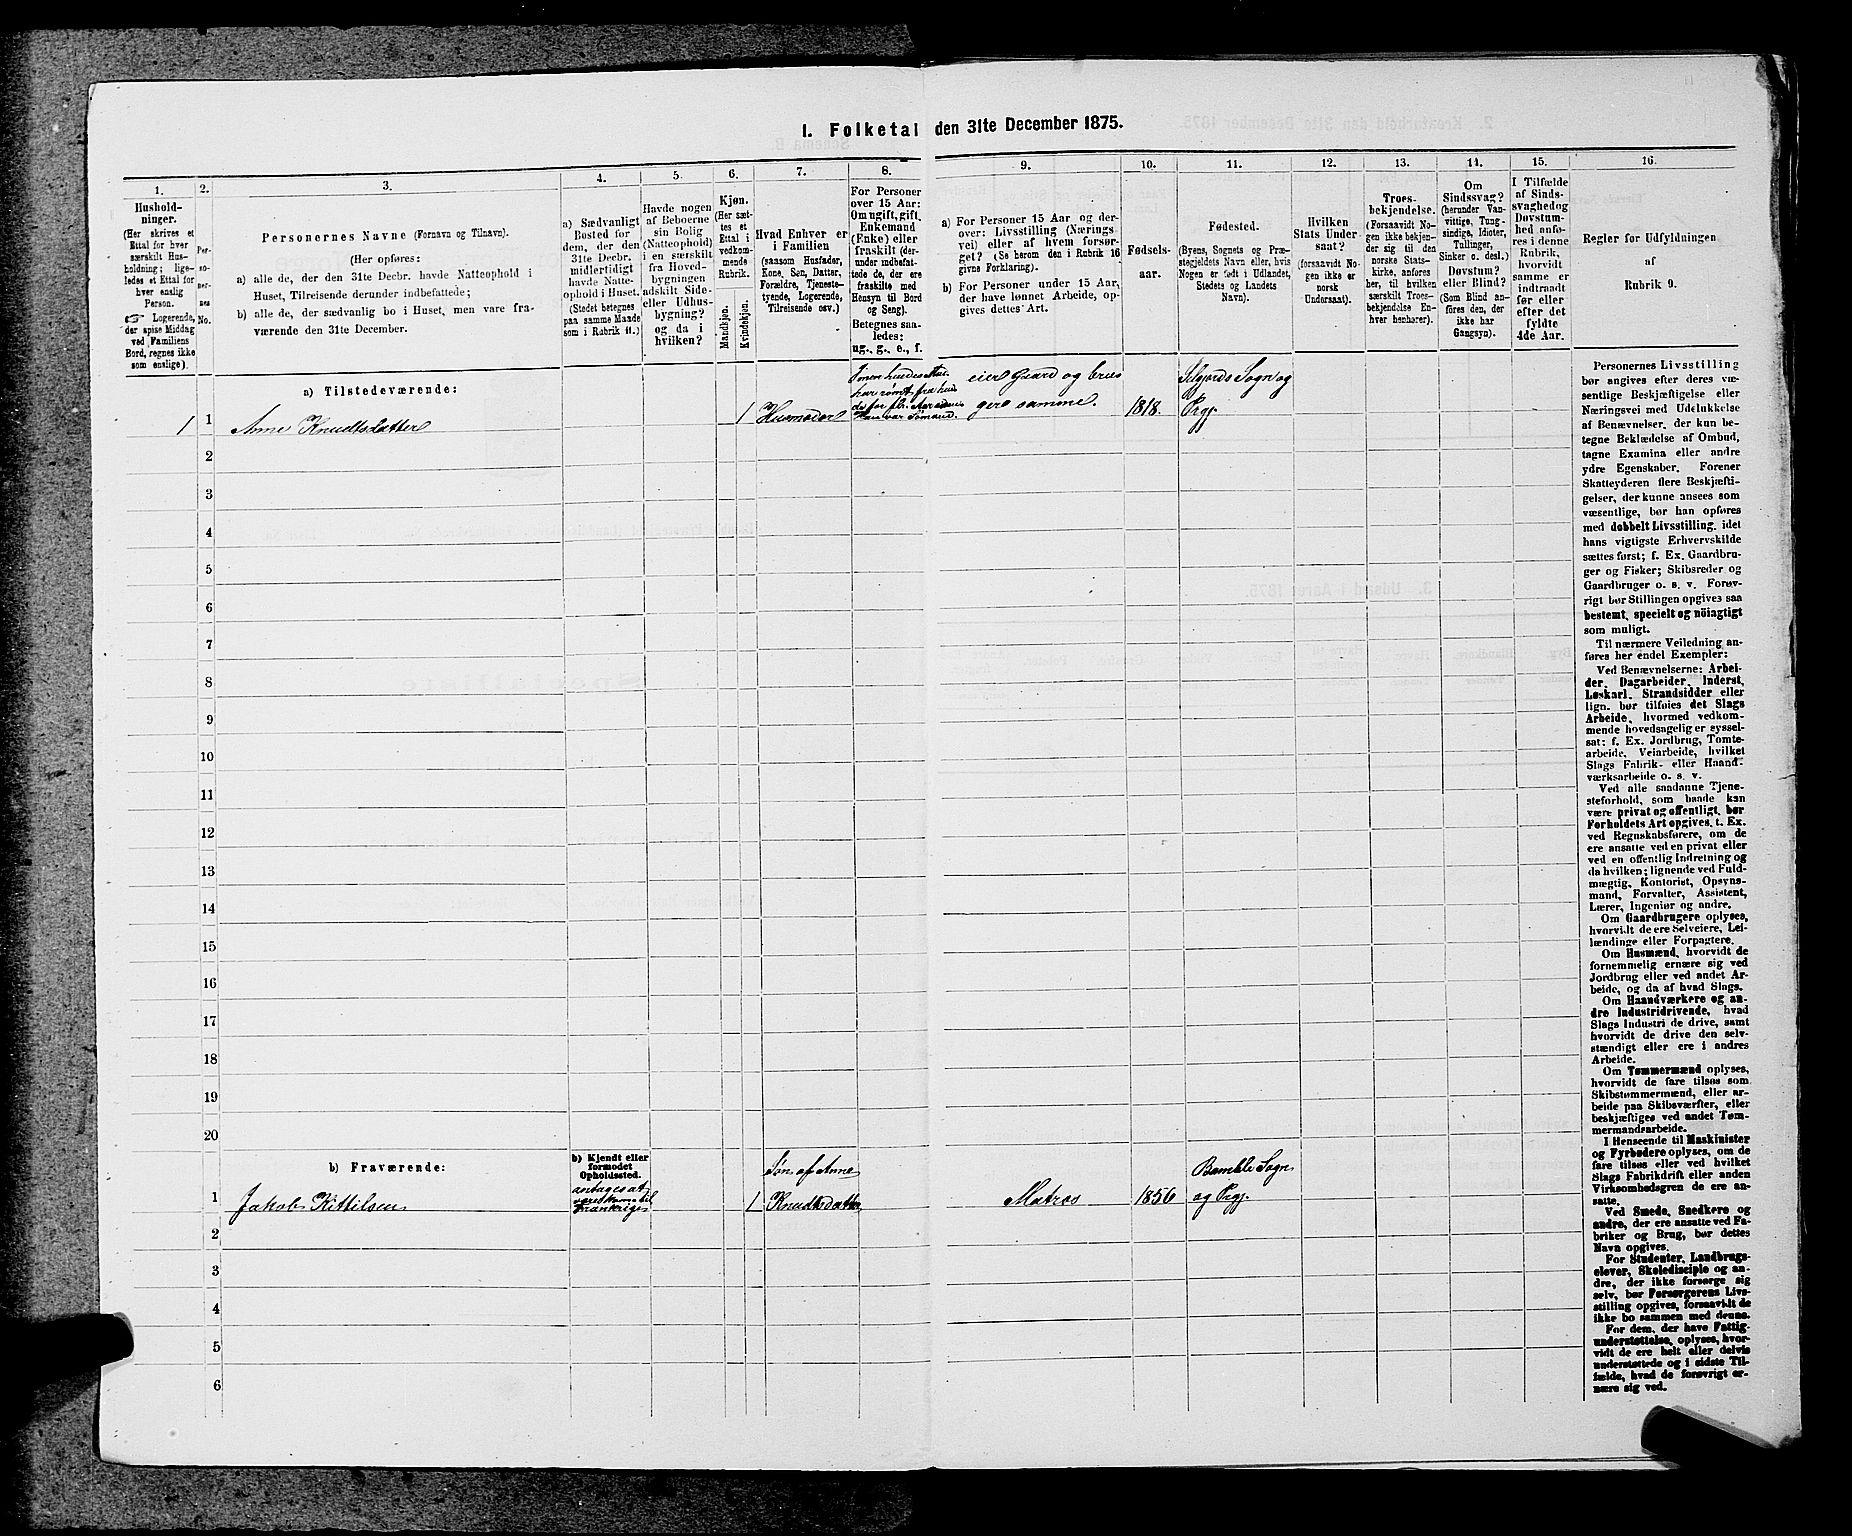 I. Folketal den 31te December 1875.
1.
2.
3.
4.
5.
6.
7.
8.
9.
10.
11.
12.
13.
14.
15.
16.
Hushold-
ninger.
(Her skrives et
Ettal for hver
særskilt Hus-
holdning; lige-
ledes et Ettal for
hver enslig
Person.
☞ Logerende,
der spise Middag
ved Familiens
Bord, regnes ikke
som enslige).
Per-
so-
ner-
nes
No.
Personernes Navne (Fornavn og Tilnavn).
(Her opføres:
a) alle de, der den 31te Decbr. havde Natteophold i
Huset, Tilreisende derunder indbefattede;
b) alle de, der sædvanlig bo i Huset, men vare fra-
værende den 31te December.
a) Sædvanligt
Bosted for
dem, der den
31te Decbr.
midlertidigt
havde Natte-
ophold i Huset.
(Stedet betegnes
paa samme Maade
som i Rubrik 11.)
Havde nogen
af Beboerne
sin Bolig
(Natteophold)
i en særskilt
fra Hoved-
bygningen
adskilt Side-
eller Udhus-
bygning?
og da i
hvilken?
Kjøn.
(Her sæt-
tes et
Ettal i
vedkom-
mende
Rubrik.
Mandkjøn.
Kvindekjøn.
Hvad Enhver er
i Familien
(saasom Husfader,
Kone, Søn, Datter,
Forældre, Tjeneste-
tyende, Logerende,
Tilreisende osv.)
For Personer
over 15 Aar:
Om ugift, gift,
Enkemand
(Enke) eller
fraskilt (der-
under indbefat-
tede de, der ere
fraskilte med
Hensyn til Bord
og Seng).
Betegnes saa-
ledes:
ug., g., e., f.
a) For Personer 15 Aar og der-
over: Livsstilling (Nærings-
vei) eller af hvem forsør-
get? (Se herom den i Rubrik 16
givne Forklaring).
b) For Personer under 15 Aar,
der have lønnet Arbeide, op-
gives dettes Art.
Fødsels-
aar.
Fødested.
(Byens, Sognets og Præ-
stegjeldets Navn eller, hvis
Nogen er født i Udlandet,
Stedets og Landets
Navn).
Hvilken
Stats Under-
saat?
(forsaavidt No-
gen ikke er
norsk
Undersaat).
Troes-
bekjendelse.
(Forsaavidt No-
gen ikke bekjen-
der sig til den
norske Stats-
kirke, anføres
her, til hvilken
særskilt Troes-
bekjendelse En-
hver henhører).
Om
Sindssvag?
(herunder Van-
vittige, Tung-
sindige, Idioter,
Tullinger,
Sinker o. desl.)
Døvstum?
eller Blind?
(Som Blind an-
føres den, der
ikke har
Gangsyn).
I Tilfælde
af Sinds-
svaghed og
Døvstum-
hed anfø-
res i denne
Rubrik,
hvorvidt
samme er
indtraadt
før eller
efter det
fyldte
4de Aar.
Regler for Udfyldningen
af
Rubrik 9.
a) Tilstedeværende:
1 1 Anne Knudtsdatter 1 Husmoder
har rømt fra
Han var Sømand.
eier Gaard og brus
gere samme. 1818. Selgjords Sogn og
Prgj.
2
3
4
5
6
7
8
9
10
11
12
13
14
15
16
17
18
19
20
b) Fraværende:
b) Kjendt eller
formodet
Opholdssted.
antages at
være komme til
Frankrige
1 Jakob Kittilsen 1
Søn af Anne
Knudtsdatter
Matros 1856 Bamble Sogn
og Prgj.
2
3
4
5
6
Personernes Livsstilling
bør angives efter deres væ-
sentlige Beskjæftigelse eller
Næringsvei med Udelukkelse
af Benævnelser, der kun be-
tegne Beklædelse af Ombud,
tagne Examina eller andre
ydre Egenskaber. Forener
Skatteyderen flere Beskjæfti-
gelser, der kunne ansees som
væsentlige, bør han opføres
med dobbelt Livsstilling, idet
hans vigtigste Erhvervskilde
sættes først; f. Ex. Gaardbru-
ger og Fisker; Skibsreder og
Gaardbruger o. s. v. Forøv-
rigt bør Stillingen opgives saa
bestemt, specielt og nöiagtigt
som muligt.
Til nærmere Veiledning an-
føres her endel Exempler:
Ved Benævnelserne: Arbei-
der, Dagarbeider, Inderst,
Løskarl, Strandsidder eller
lign. bør tilføies det Slags
Arbeide, hvormed vedkom-
mende hovedsagelig er syssel-
sat; f. Ex. Jordbrug, Tomte-
arbeide, Veiarbeide, hvilket
Slags Fabrik- eller Haand-
værksarbeide o. s. v.
Ved alle saadanne Tjene-
steforhold, som baade kan
være privat og offentligt, bør
Forholdets Art opgives, t. Ex.
ved Regnskabsførere, om de
ere ansatte ved en privat eller
ved en offentlig Indretning og
da hvilken; lignende ved Fuld-
mægtig, Kontorist, Opsyns-
mand, Forvalter, Assistent,
Lærer, Ingeniør og andre.
Om Gaardbrugere oplyses,
hvorvidt de ere Selveiere, Lei-
lændinge eller Forpagtere.
Om Husmænd, hvorvidt de
fornemmelig ernære sig ved
Jordbrug eller ved andet Ar-
beide, og da af hvad Slags.
Om Haandværkere og an-
dre Industridrivende, hvad
Slags Industri de drive, samt
hvorvidt de drive den selv-
stændigt eller ere i andres
Arbeide.
Om Tømmermænd oplyses,
hvorvidt de fare tilsøs som
Skibstømmermænd, eller ar-
beide paa Skibsværfter, eller
beskjæftiges ved andet Tøm-
mermandsarbeide.
I Henseende til Maskinister
og Fyrbødere oplyses, om de
fare tilsøs eller ved hvilket
Slags Fabrikdrift eller anden
Virksomhedsgren de ere an-
satte.
Ved Smede, Snedkere og
andre, der ere ansatte ved Fa-
briker og Brug, bør dettes
Navn opgives.
For Studenter, Landbrugs-
elever, Skoledisciple og an-
dre, der ikke forsørge sig
selv, bør Forsørgerens Livs-
stilling opgives, forsaavidt de
ikke bo sammen med denne.
For dem, der have Fattig-
understøttelse, oplyses, hvor-
vidt de ere helt eller delvis
understøttede og i sidste Til-
fælde, hvad de forøvrigt er-
nære sig ved.